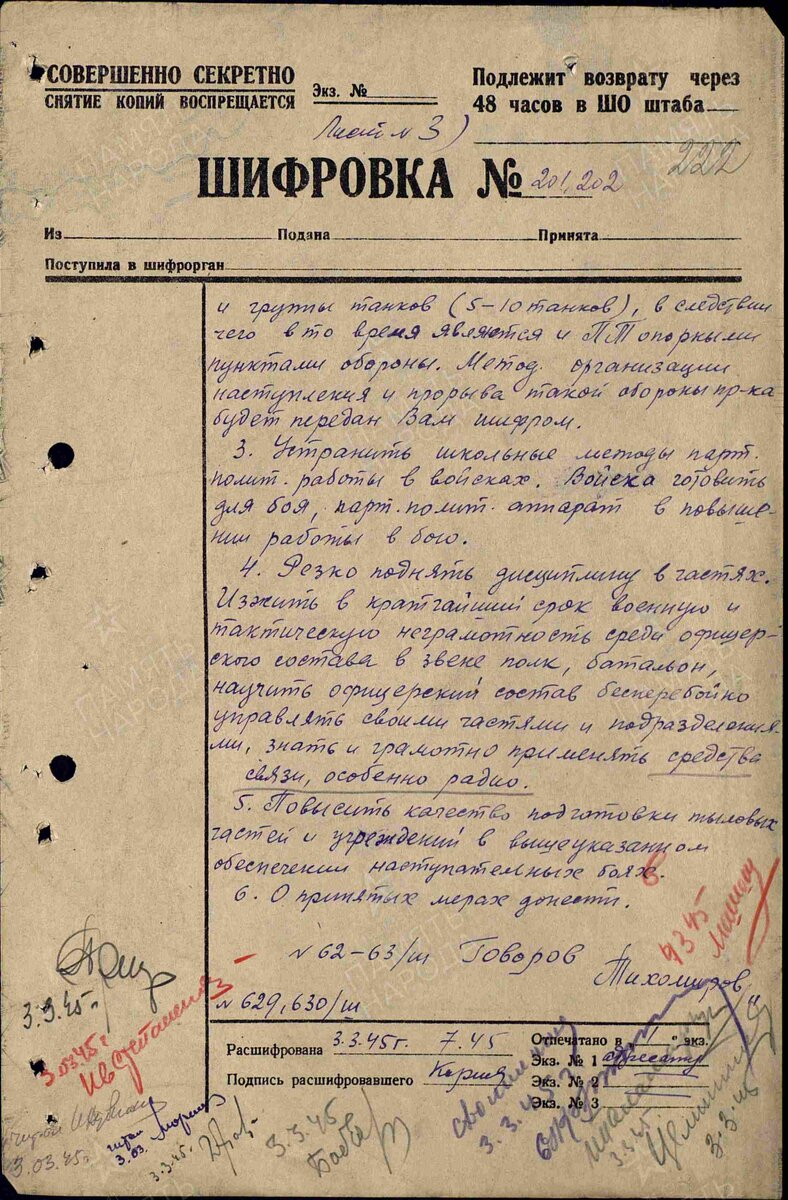 СОВЕРШЕННО СЕКРЕТНО
СНЯТИЕ КОПИЙ ВОСПРЕЩАЕТСЯ
Экз. №
Подлежит возврату через
48 часов в ШО штаба
Лист № 3)
222
ШИФРОВКА № 201, 202
Из Подана Принята
Поступила в шифрорган
и группы танков (5-10 танков), в следствии
чего в то время являются и ПТ опорными
пунктами обороны. Метод организации
наступления и прорыва такой обороны пр-ка
будет передан Вам шифром.
3. Устранить школьные методы парт.
полит. работы в войсках. Войска готовить
для боя, парт. полит. аппарат в повыше-
нии работы в бою.
4. Резко поднять дисциплину в частях.
Изжить в кратчайший срок военную и
тактическую неграмотность среди офицер-
ского состава в звене полк, батальон,
научить офицерский состав бесперебойно
управлять своими частями и подразделения-
ми, знать и грамотно применять средства
связи, особенно радио.
5. Повысить качество подготовки тыловых
частей и учреждений в вышеуказанном
обеспечении наступательных боях.
6. О принятых мерах донести.
№ 62-63/ш Говоров
Тихомиров
№ 629,630/ш
3.3.45г.
3.03.45г
Расшифрована 3.3.45г. 7.45
Отпечатано в " " экз.
Экз. № 1 адресату
Подпись расшифровавшего
Экз. № 2
Экз. № 3
3.03.45г.
читал
3.03.
3.3.45г.
3.3.45
3.3.45
3.3.45г.
3.3.45
ПАМЯТЬ
НАРОДА